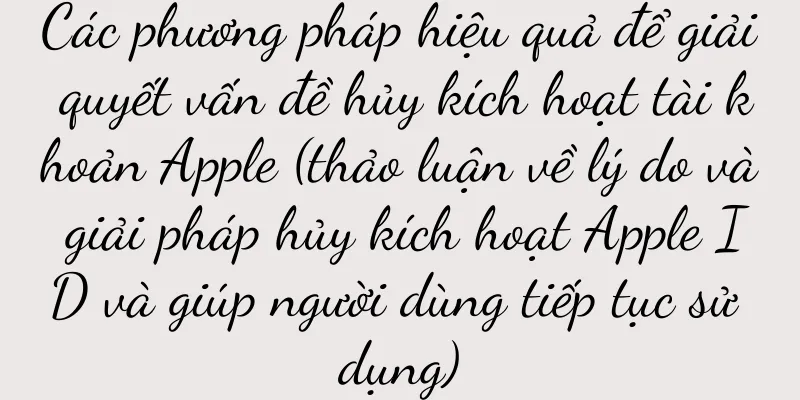 Các phương pháp hiệu quả để giải
quyết vấn đề hủy kích hoạt tài k
hoản Apple (thảo luận về lý do và
giải pháp hủy kích hoạt Apple I
D và giúp người dùng tiếp tục sử
dụng)